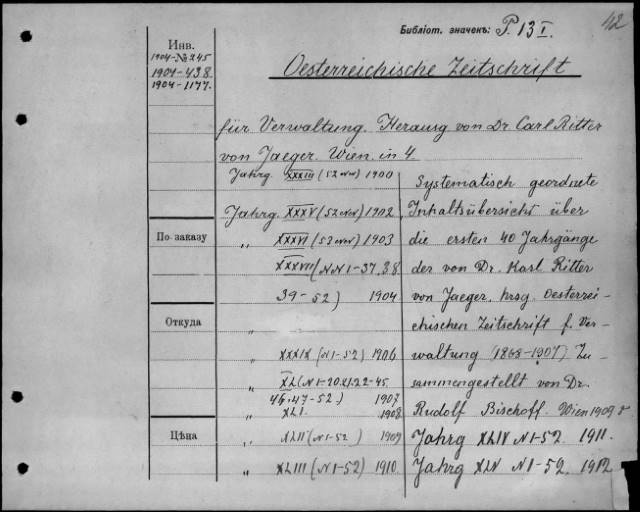 42
Библіот. значекъ: P. 13 I.
Инв.
1904-№245
1904-438.
1904-1177.
Oesterreichische Zeitschrift
für Verwaltung. Herausg von Dr. Carl Ritter
von Jaeger. Wien. in 4.
Jahrg. XXXIII (52 нов) 1900
Jahrg. XXXV (52 нов) 1902
По заказу
„ XXXVI (52 нов) 1903
XXXVII (NN 1-37, 38.
39-52) 1904
Откуда
„
„ XXXIX (N 1-52) 1906
„ XL (N 1-20.21.22-45.
46.47-52.) 1907
„ XLI. 1908
Цѣна
„ XLII (N 1-52) 1909
„ XLIII (N 1-52) 1910.
Systematisch geordnete
Inhaltsübersicht über
die ersten 40 Jahrgänge
der von Dr. Karl Ritter
von Jaeger, hrsg. Oesterrei-
chischen Zeitschrift f. Ver-
waltung (1868-1907) Zu-
sammengestellt von Dr.
Rudolf Bischoff. Wien 1909
Jahrg XLIV N 1-52. 1911.
Jahrg XLV N 1-52. 1912